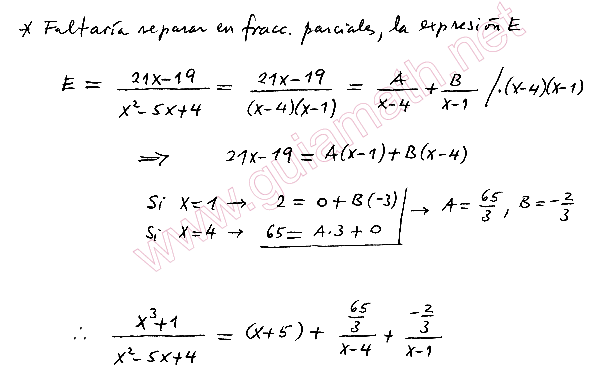 * Faltaría separar en fracc. parciales, la expresión E
E = \frac{21x-19}{x²-5x+4} = \frac{21x-19}{(x-4)(x-1)} = \frac{A}{x-4} + \frac{B}{x-1} /·(x-4)(x-1)
⇒ 21x-19 = A(x-1)+B(x-4)
Si x=1 → 2 = 0+B(-3)
Si x=4 → 65 = A·3+0 → A = \frac{65}{3}, B = -\frac{2}{3}
∴ \frac{x³+1}{x²-5x+4} = (x+5) + \frac{\frac{65}{3}}{x-4} + \frac{-\frac{2}{3}}{x-1}
www.guiamath.net